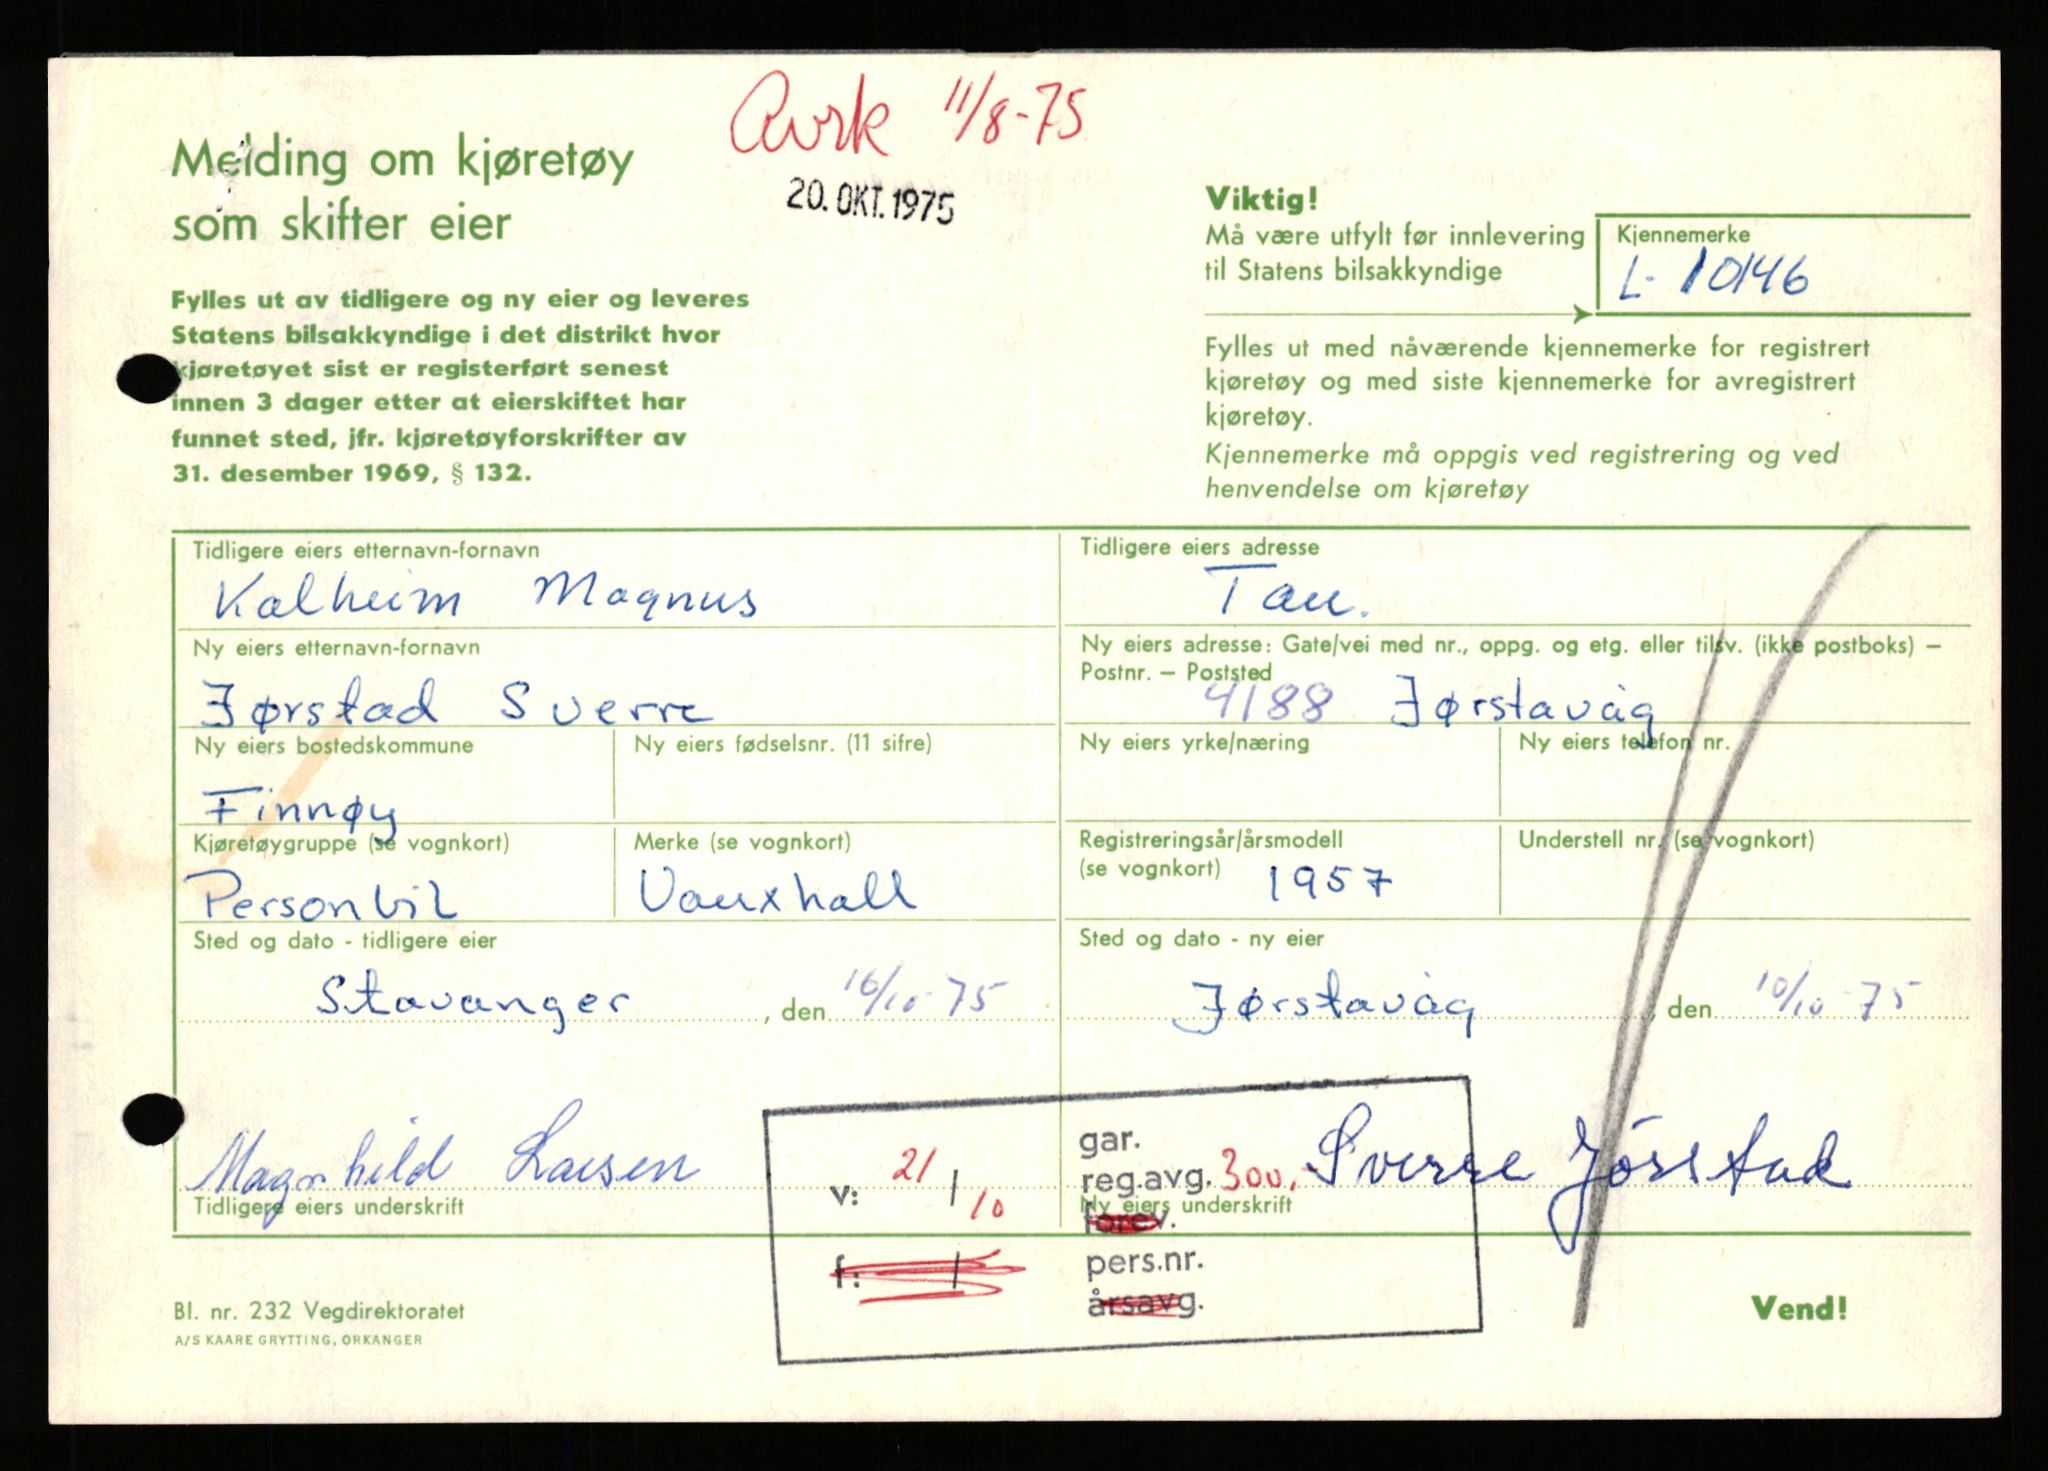 Avrk 11/8-75
20. OKT. 1975
Melding om kjøretøy
som skifter eier
Fylles ut av tidligere og ny eier og leveres
Statens bilsakkyndige i det distrikt hvor
kjøretøyet sist er registerført senest
innen 3 dager etter at eierskiftet har
funnet sted, jfr. kjøretøyforskrifter av
31. desember 1969, § 132.
Viktig!
Må være utfylt før innlevering
til Statens bilsakkyndige
Kjennemerke
L-10146
Fylles ut med nåværende kjennemerke for registrert
kjøretøy og med siste kjennemerke for avregistrert
kjøretøy.
Kjennemerke må oppgis ved registrering og ved
henvendelse om kjøretøy
Tidligere eiers etternavn-fornavn
Kalheim Magnus
Tidligere eiers adresse
Tau.
Ny eiers etternavn-fornavn
Jørstad Sverre
Ny eiers adresse: Gate/vei med nr., oppg. og etg. eller tilsv. (ikke postboks) –
Postnr. – Poststed
4188 Jørstavåg
Ny eiers bostedskommune
Finnøy
Ny eiers fødselsnr. (11 sifre)
Ny eiers yrke/næring
Ny eiers telefon nr.
Kjøretøygruppe (se vognkort)
Personbil
Merke (se vognkort)
Vauxhall
Registreringsår/årsmodell
(se vognkort) 1957
Understell nr. (se vognkort)
Sted og dato - tidligere eier
Stavanger, den 16/10-75
Sted og dato - ny eier
Jørstavåg, den 10/10-75
Magnhild Larsen
Tidligere eiers underskrift
Sverre Jørstad
Ny eiers underskrift
v: 21/10
f: /
gar.
reg.avg. 300,-
forev.
pers.nr.
årsavg.
Bl. nr. 232 Vegdirektoratet
A/S KAARE GRYTTING, ORKANGER
Vend!